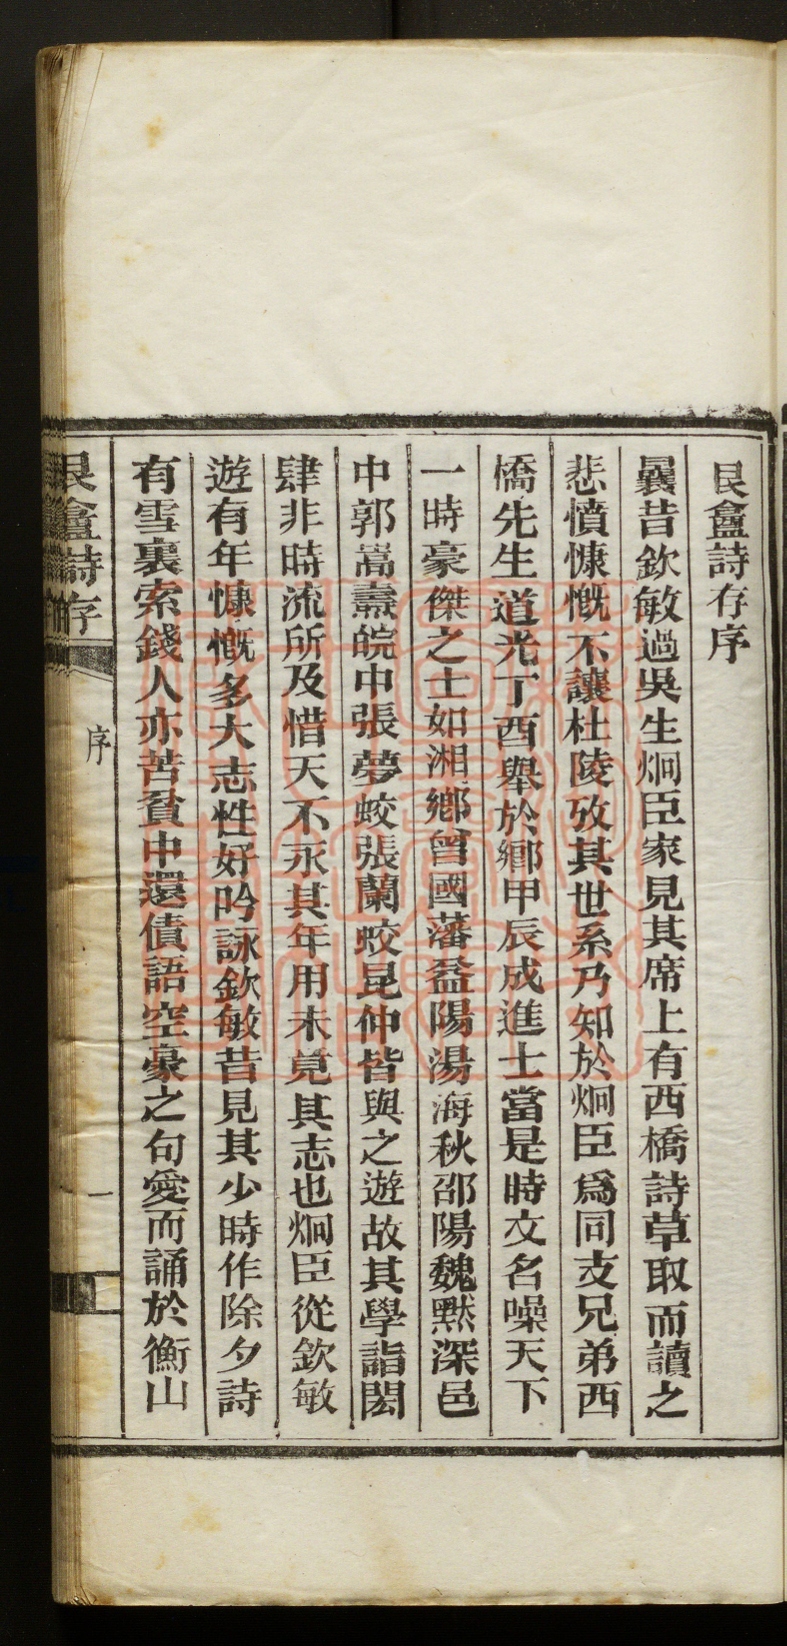 艮盦詩存序
曩昔欽敏過吳生炯臣家見其席上有西橋詩草取而讀之
悲憤慷慨不讓杜陵攷其世系乃知於炯臣爲同支兄弟西
橋先生道光丁酉舉於鄉甲辰成進士當是時文名噪天下
一時豪傑之士如湘鄉曾國藩益陽湯海秋邵陽魏默深邑
中郭嵩燾皖中張夢蛟張蘭蛟昆仲皆與之遊故其學詣閎
肆非時流所及惜天不永其年用未竟其志也炯臣從欽敏
遊有年慷慨多大志性好吟詠欽敏昔見其少時作除夕詩
有雪裏索錢人亦苦貧中還債語空豪之句愛而誦於衡山
艮盦詩存
序
一